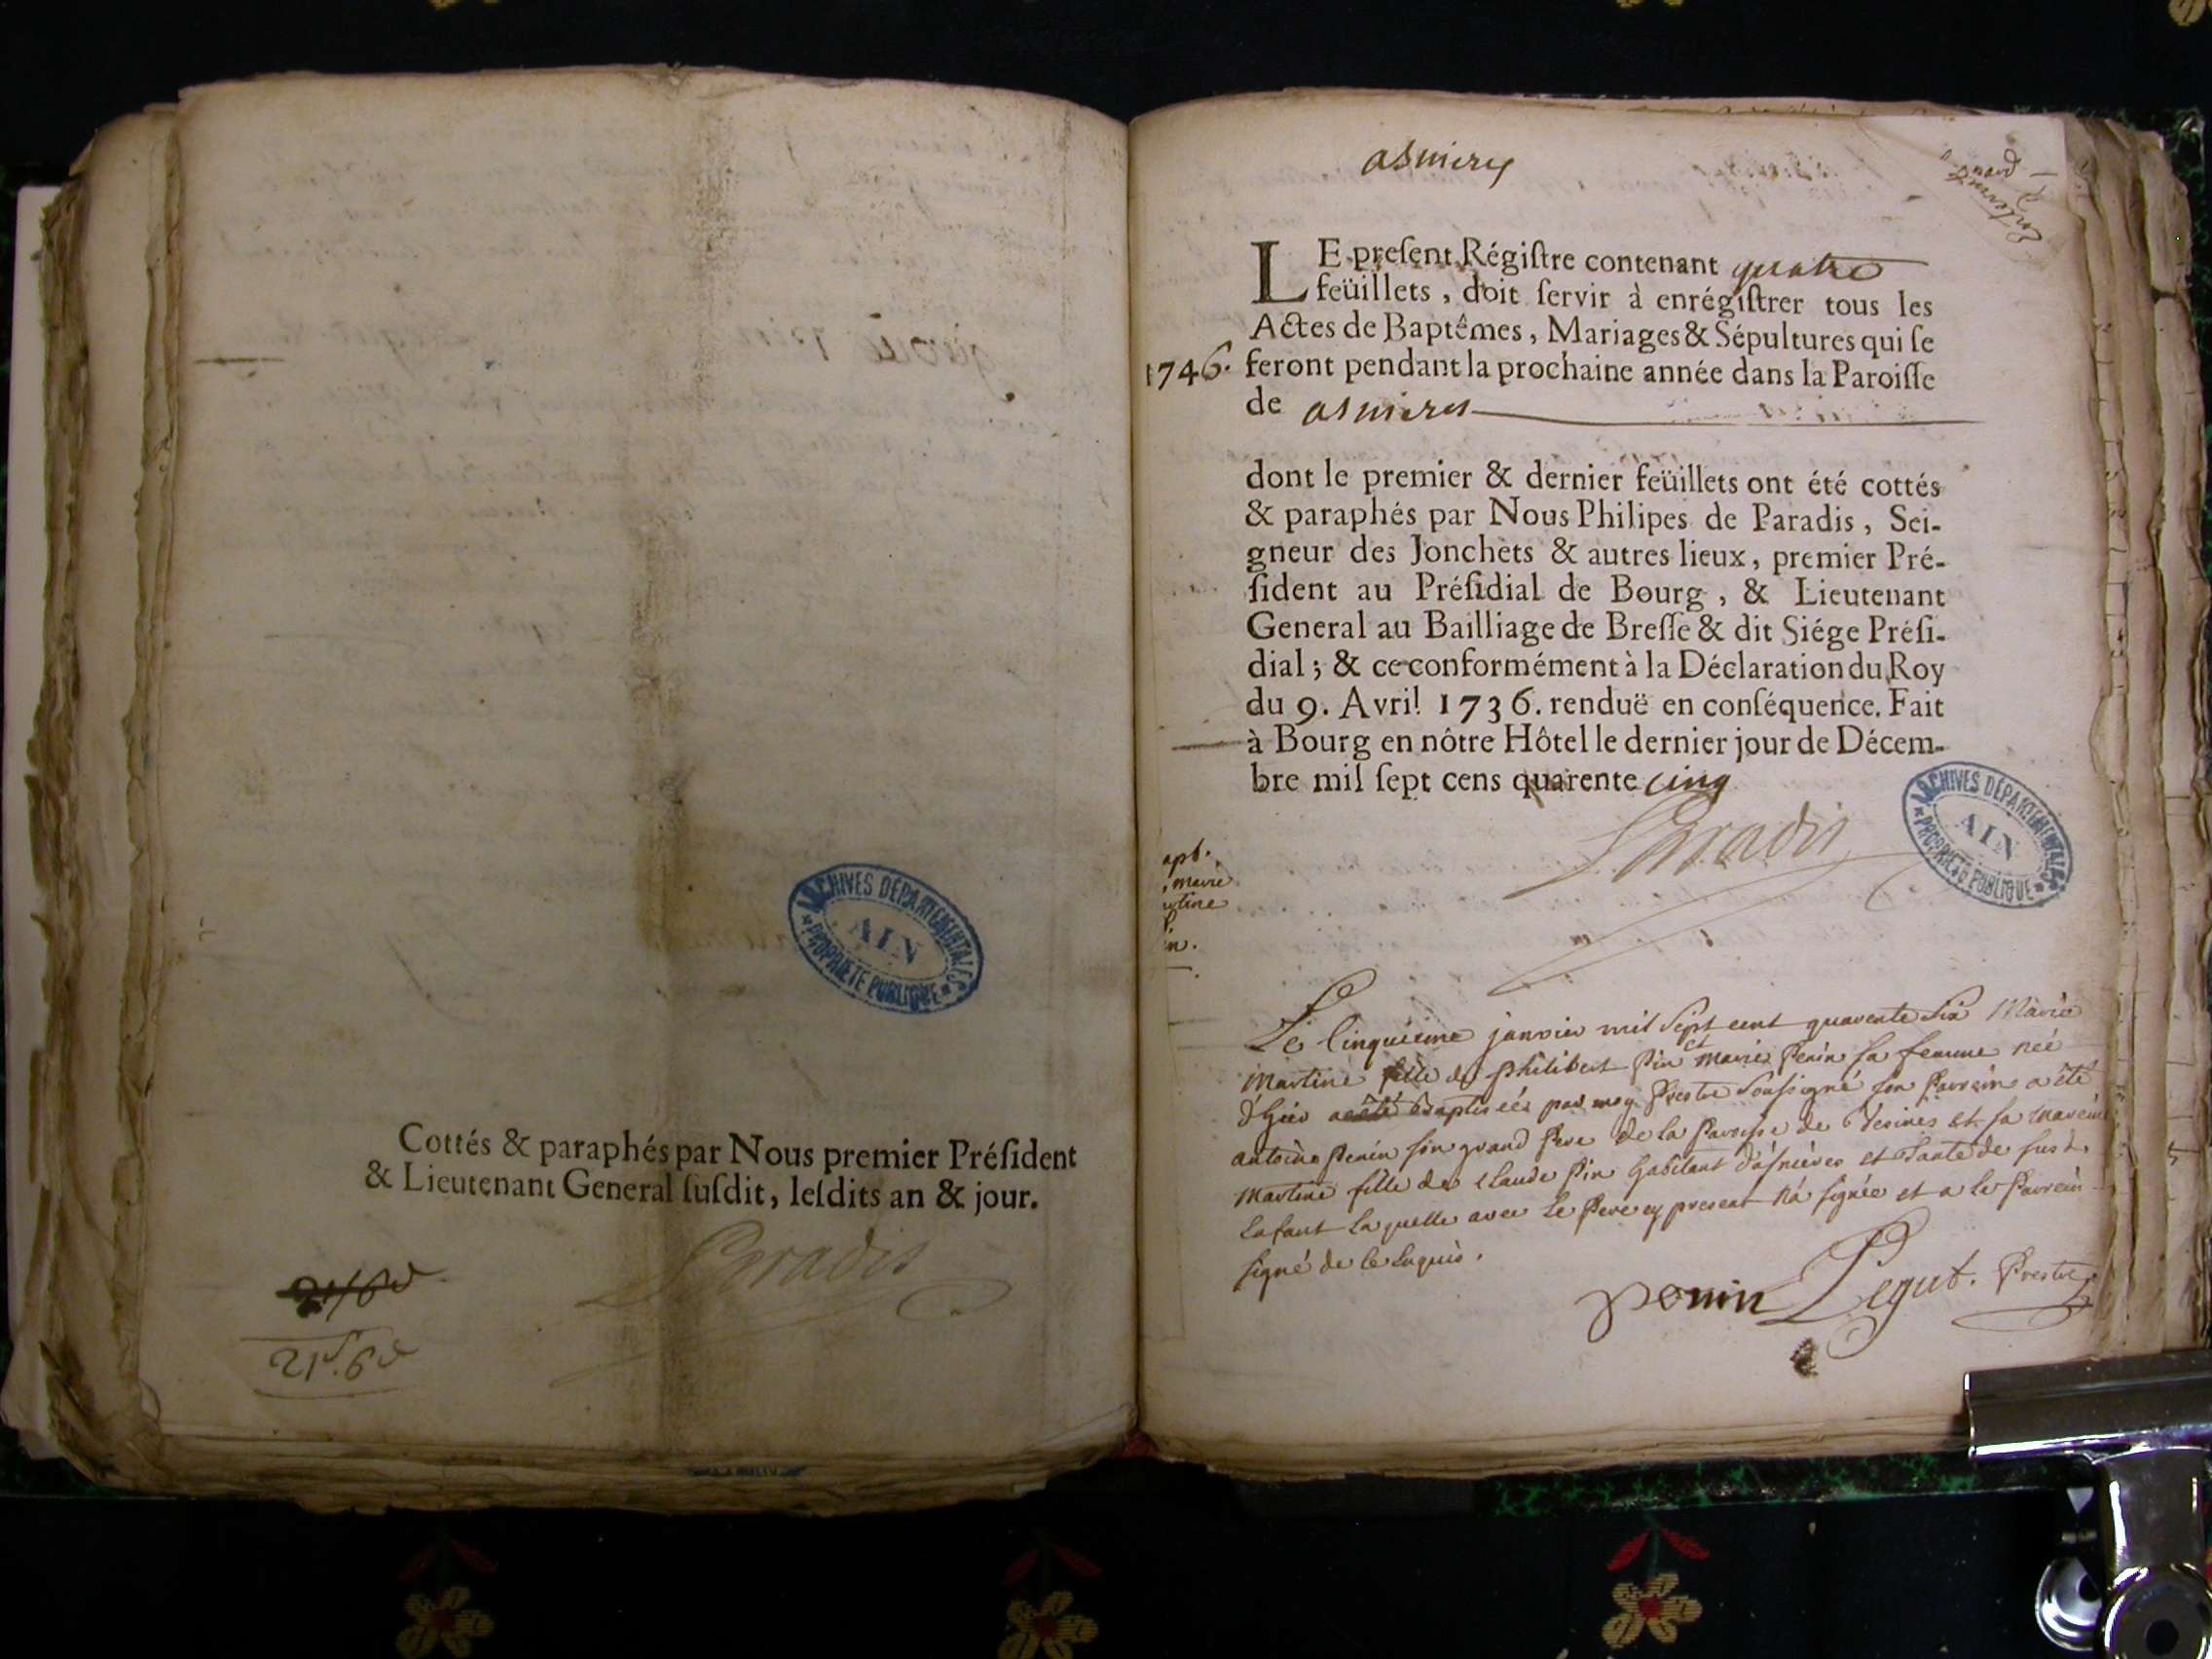 Cottés & paraphés par Nous premier Préſident
& Lieutenant General ſuſdit, leſdits an & jour.
Paradis
21ˢ.6ᵈ
ARCHIVES DÉPARTEMENTALES
AIN
PROPRIÉTÉ PUBLIQUE
asnieres
LE preſent Régiſtre contenant quatre
feüillets, doit ſervir à enrégiſtrer tous les
Actes de Baptêmes, Mariages & Sépultures qui ſe
1746. feront pendant la prochaine année dans la Paroiſſe
de asnieres
dont le premier & dernier feüillets ont été cottés
& paraphés par Nous Philipes de Paradis, Sei-
gneur des Jonchets & autres lieux, premier Pré-
ſident au Préſidial de Bourg, & Lieutenant
General au Bailliage de Breſſe & dit Siége Préſi-
dial; & ce conformément à la Déclaration du Roy
du 9. Avril 1736. renduë en conſéquence. Fait
à Bourg en nôtre Hôtel le dernier jour de Décem-
bre mil ſept cens quarente cinq
Paradis
ARCHIVES DÉPARTEMENTALES
AIN
PROPRIÉTÉ PUBLIQUE
apt.
marie
rtine
in.
Le Cinquieme janvier mil Sept cent quarente Six Marie
Martine fille de Philibert Pin et marie Penin sa femme née
d'hier a été baptisée par moy Prestre Soussigné son Parrein a été
antoine Penin son grand Pere de la Paroisse de Vesines et sa Mareine
Martine fille de Claude Pin habitant d'asnières et Tante de sus d.
Enfant laquelle avec le Pere cy present n'a signée et a le Parrein
signé de ce Enquis.
penin Pegut. Prestre